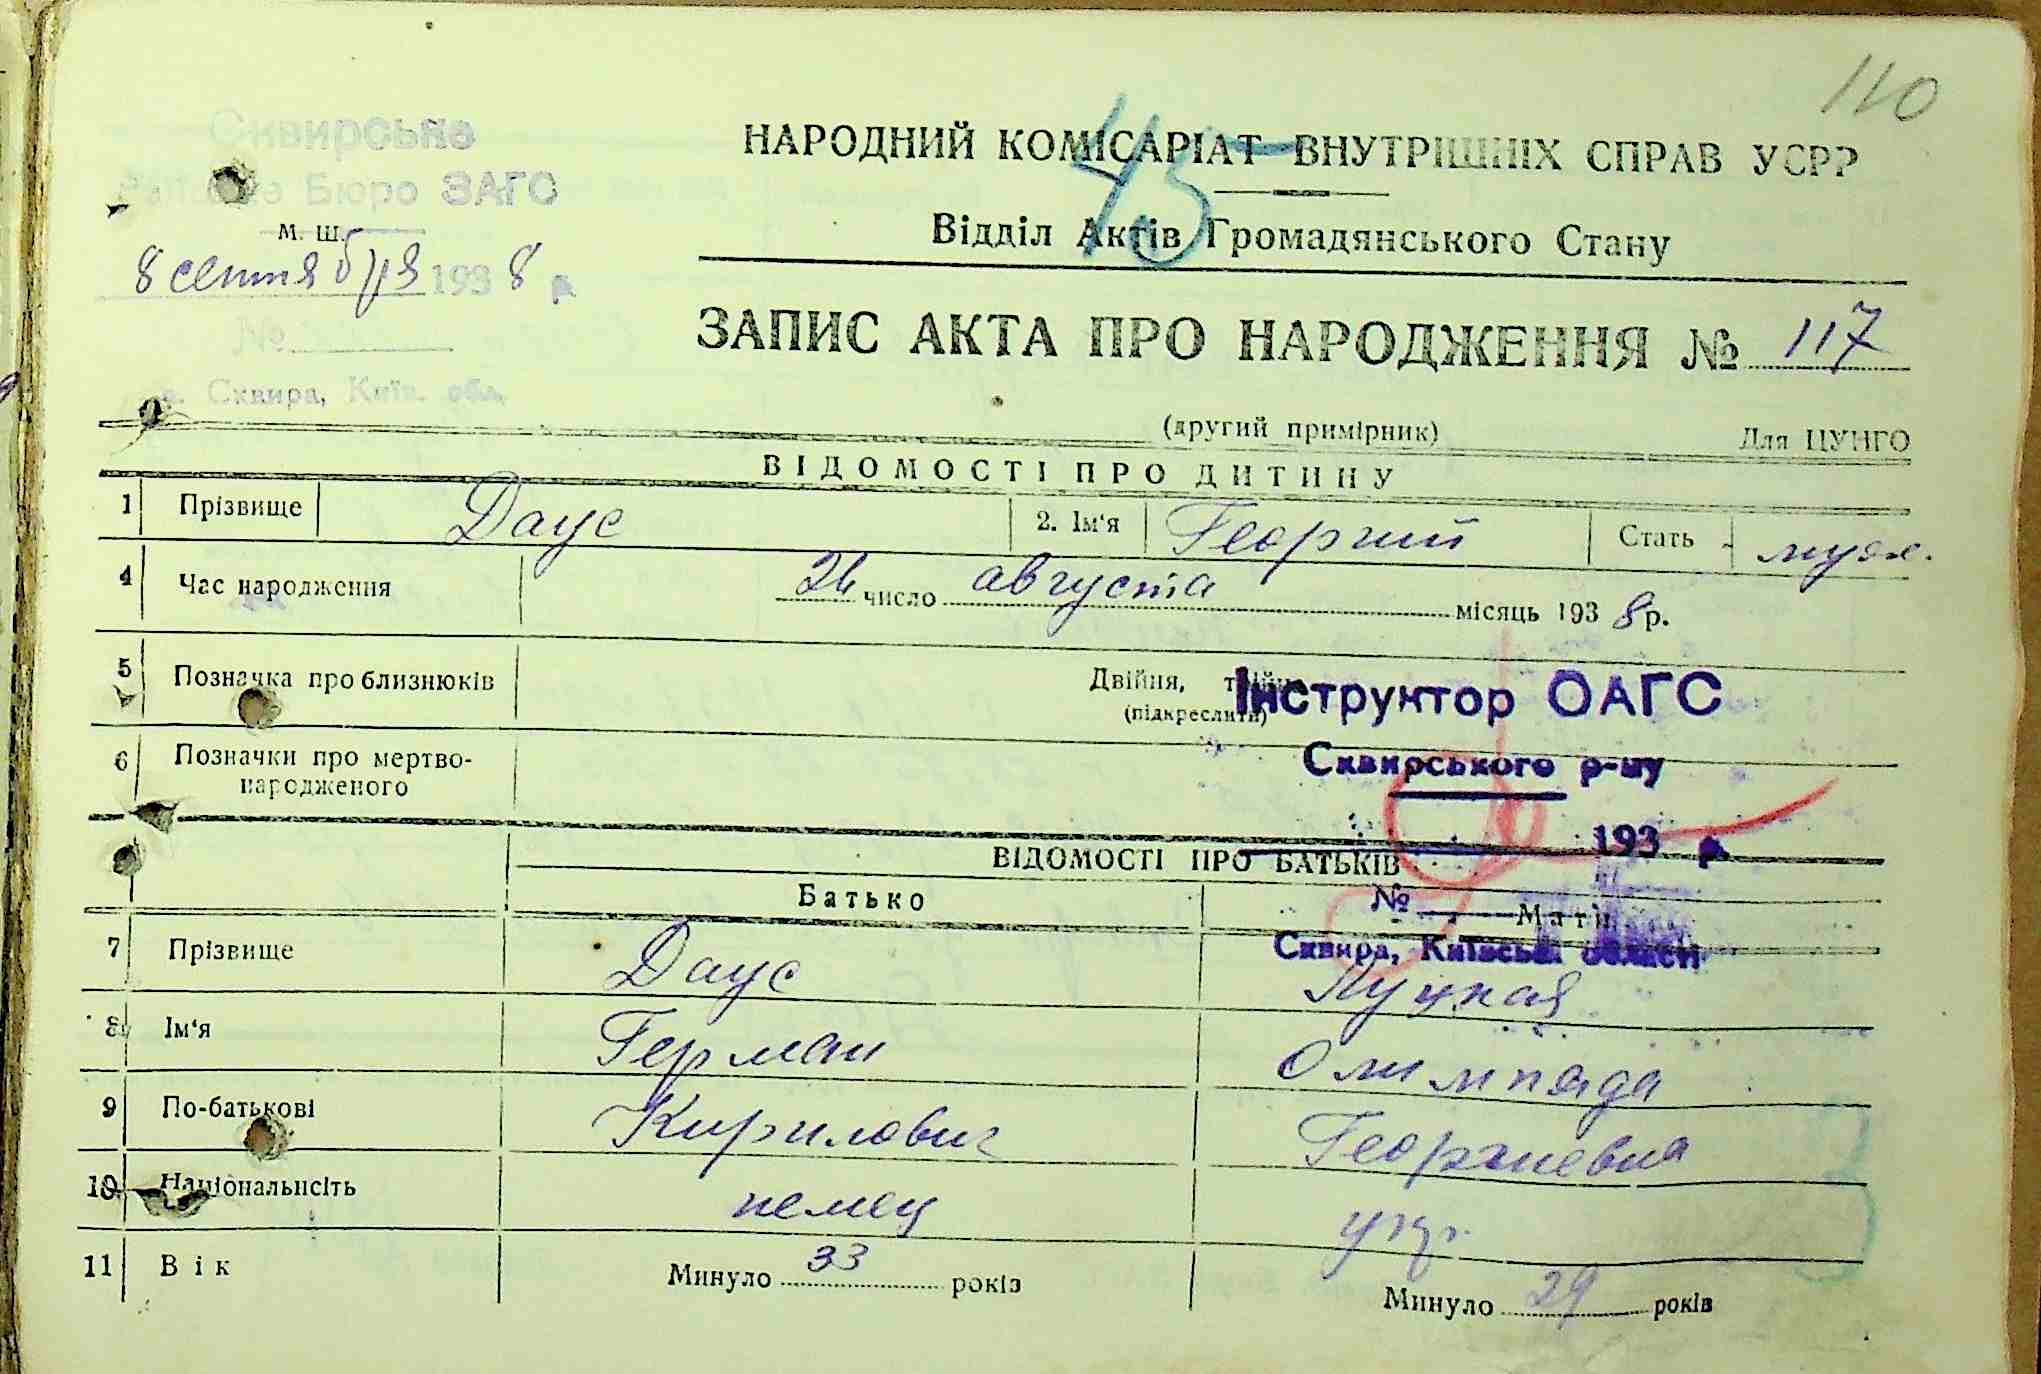 110
45
Сквирське
Районне Бюро ЗАГС
м. ш.
8 сентября 1938 р.
№
м. Сквира, Київ. обл.
НАРОДНИЙ КОМІСАРІАТ ВНУТРІШНІХ СПРАВ УСРР
Відділ Актів Громадянського Стану
ЗАПИС АКТА ПРО НАРОДЖЕННЯ № 117
(другий примірник) Для ЦУНГО
ВІДОМОСТІ ПРО ДИТИНУ
1 Прізвище Даус 2. Ім'я Георгий Стать муж.
4 Час народження 26 число августа місяць 1938 р.
5 Позначка про близнюків Двійня, трійня
(підкреслити)
Інструктор ОАГС
6 Позначки про мертво-
народженого
Сквирського р-ну
193 р.
ВІДОМОСТІ ПРО БАТЬКІВ
Батько Мати
№
Сквира, Київської області
7 Прізвище Даус Луцкая
8 Ім'я Герман Олимпяда
9 По-батькові Кирилович Георгиевна
10 Національність немец укр.
11 Вік Минуло 33 років Минуло 29 років